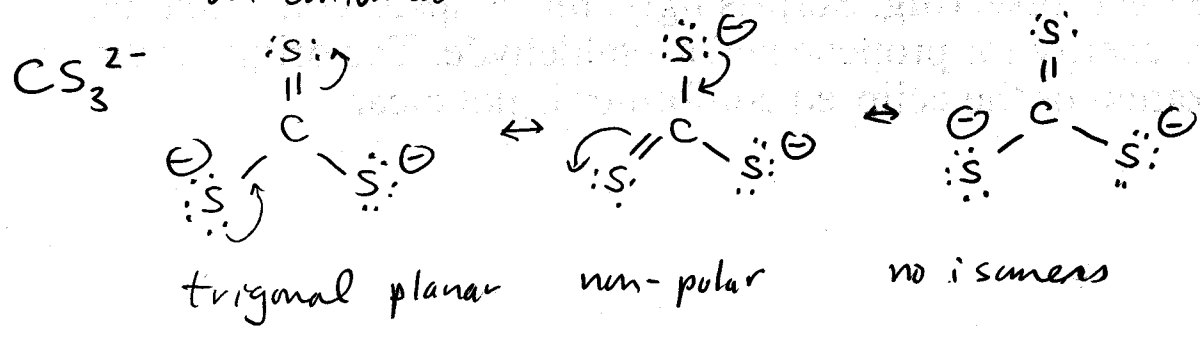 CS₃²⁻
:S: S: ⊖ :S:
C ↔ C ↔ C
⊖ S S ⊖ S S ⊖ ⊖ S S ⊖
trigonal planar non-polar no isomers